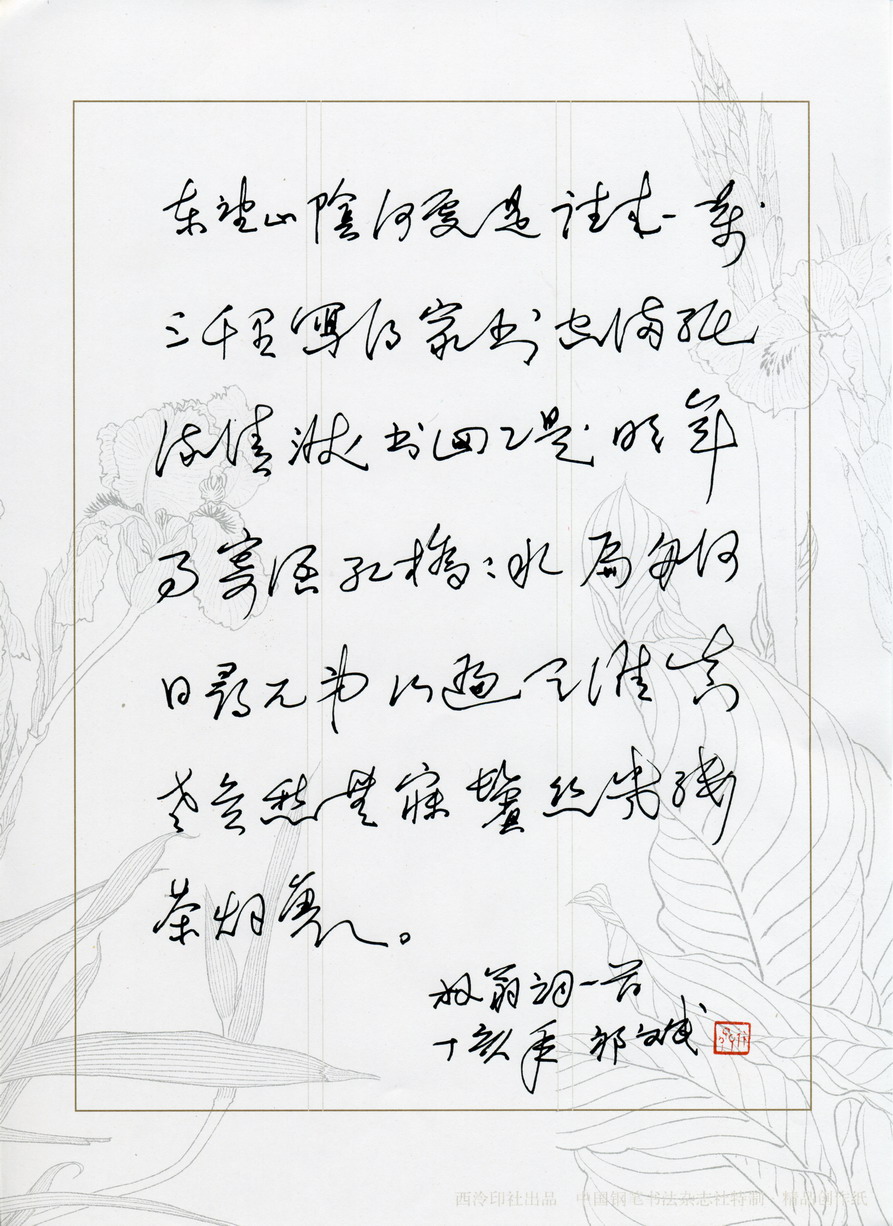 东望山陰何處是往来一萬
三千里寫得家书空满纸
流清淚书回已是明年
事寄语红橋々水扁舟何
日尋兄弟行遍天涯真
老矣愁無寐鬢丝幾缕
茶烟裏。
放翁词一首
丁亥年 郭文
西泠印社出品 中国钢笔书法杂志社特制 精品创作纸